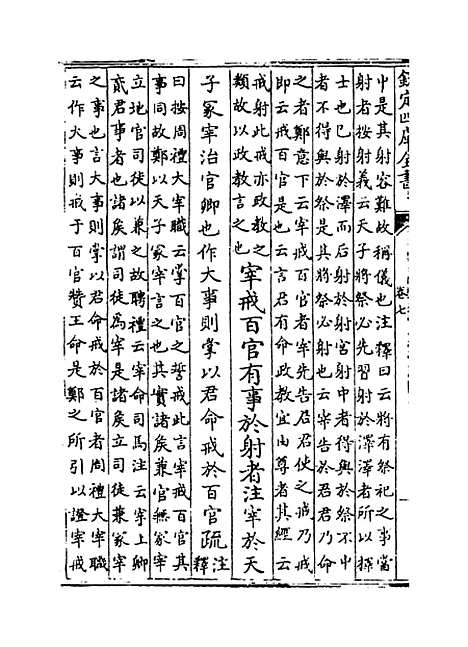 欽定四庫全書
卷七
中是其射容難故稱儀也注釋曰云將有祭祀之事當
射者按射義云天子將祭必先習射於澤澤者所以擇
士也已射於澤而后射於射宮射中者得與於祭不中
者不得與於祭是其將祭必射也云宰告於君君乃命
之者鄭意下云宰戒百官者宰先告君君使之戒乃戒
即云戒百官是也云言君有命政教宜由尊者其經云
戒射此戒亦政教之
類故以政教言之也
宰戒百官有事於射者注宰於天
子冡宰治官卿也作大事則掌以君命戒於百官疏注
釋
曰按周禮大宰職云掌百官之誓戒此言宰戒百官其
事同故鄭以天子冡宰言之也其實諸矦兼官無冡宰
立地官司徒以兼之故聘禮云宰命司馬注云宰上卿
貳君事者也諸矦謂司徒為宰是諸矦立司徒兼冡宰
之事也言大事則掌以君命戒於百官者周禮大宰職
云作大事則戒于百官贊王命是鄭之所引以證宰戒